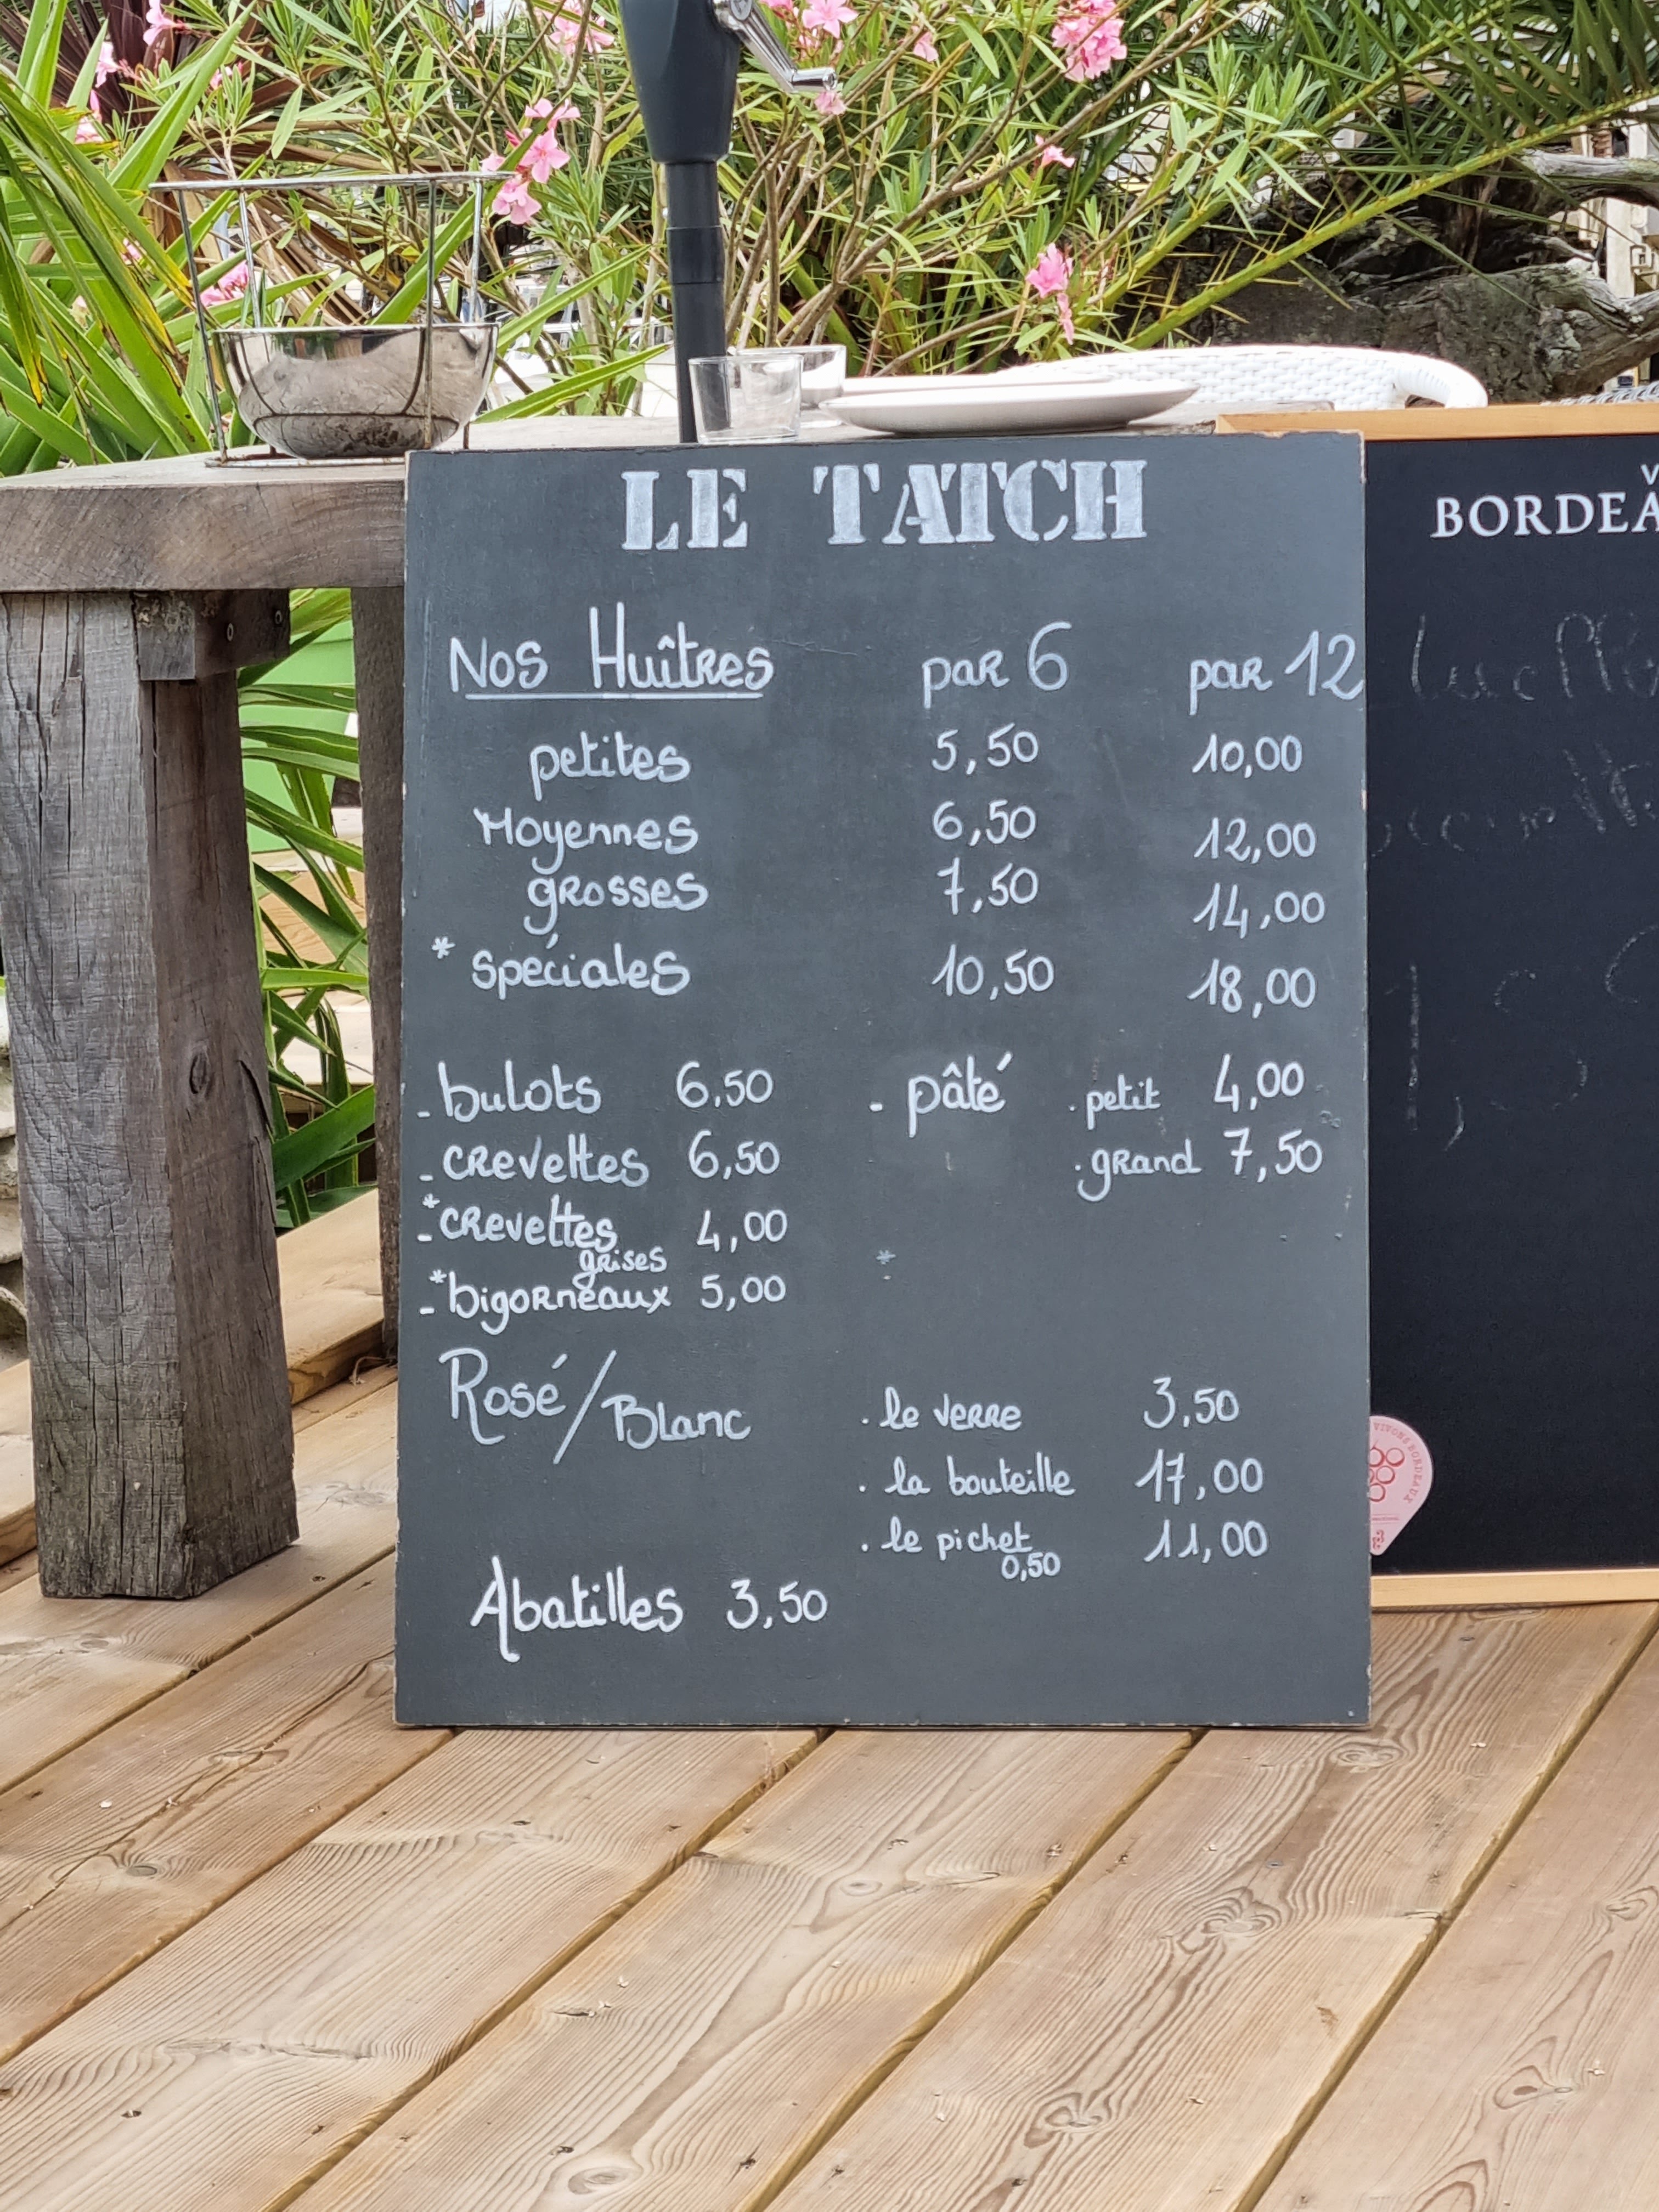 LE TATCH
Nos Huîtres par 6 par 12
petites 5,50 10,00
Moyennes 6,50 12,00
grosses 7,50 14,00
* spéciales 10,50 18,00
- bulots 6,50 - pâté . petit 4,00
- crevettes 6,50 . grand 7,50
-* crevettes 4,00
grises
*
-* bigorneaux 5,00
Rosé/Blanc . le verre 3,50
. la bouteille 17,00
. le pichet 11,00
0,50
Abatilles 3,50
BORDEA